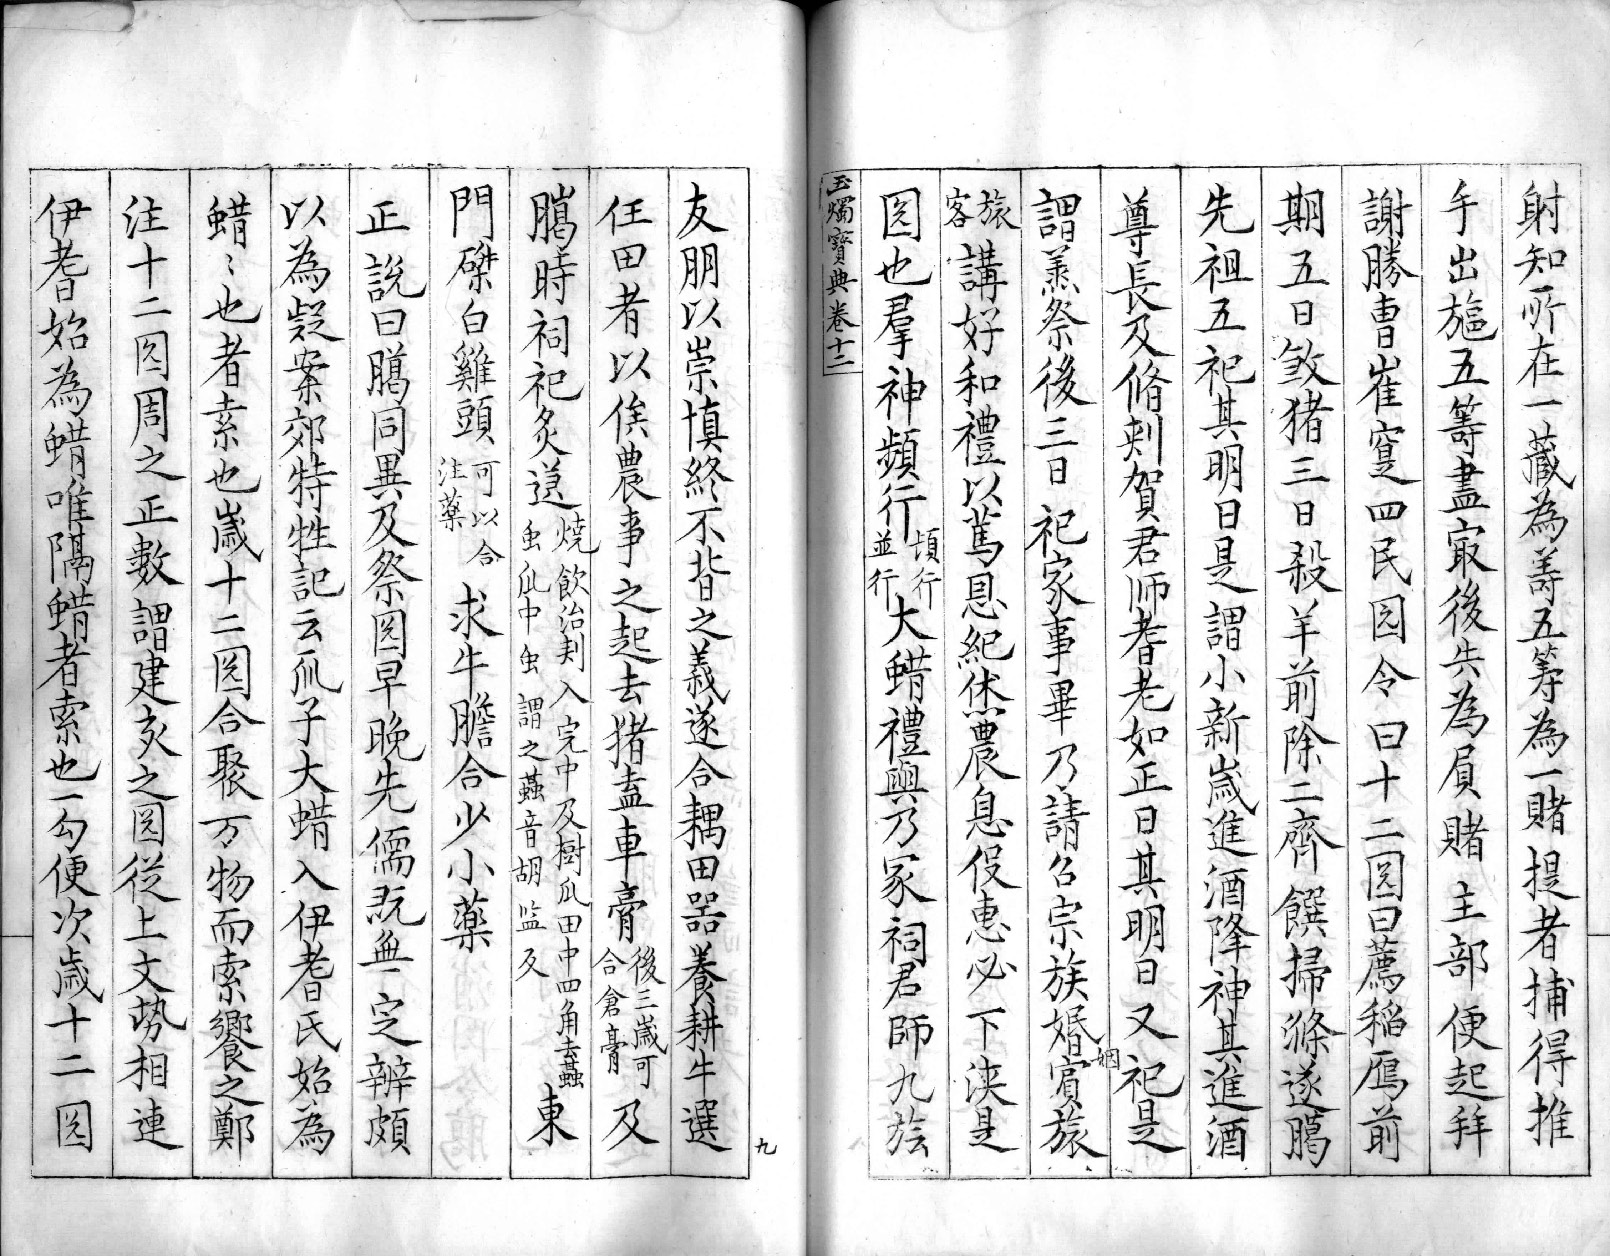 射知所在一藏為壽五筭為一賭提者捕得推
手出䓤五等盡取後失為負賭主部便起拜
謝勝曹崔寔四民囜令曰十二囜曰薦稻鴈前
期五日敘猪三日殺羊前除二齊饌掃滌遂臈
先祖五祀其明日是謂小新歲進酒降神其進酒
尊長及脩刺賀君师耆老如正日其明日又祀是
謂蒸祭後三日祀家事畢乃請召宗族婚姻賓旅
旅客
講好和禮以篤恩紀休農息役惠必下浹是
囜也羣神頻行
頃行並行
大蜡禮興乃冢祠君師九族
玉燭寶典卷十二
九
友朋以崇慎終不背之義遂合耦田器養耕牛選
任田者以俟農事之起去猪盍車膏
後三歲可合倉膏
及
臈時祠祀炙萐
燒飲治刾入完中及樹瓜田中四角去蟲
虫瓜中虫謂之蟲音胡監反
東
門磔白雞頭
可以合注藥
求牛膽合少小藥
正說曰臈同異及祭囜早晚先儒既無一定辨頗
以為疑案郊特牲記云爪子大蜡入伊耆氏始為
蜡〻也者素也歲十二囜合聚万物而索饗之鄭
注十二囜周之正數謂建亥之囜從上文勢相連
伊耆始為蜡唯隔蜡者索也一勾便次歲十二囜